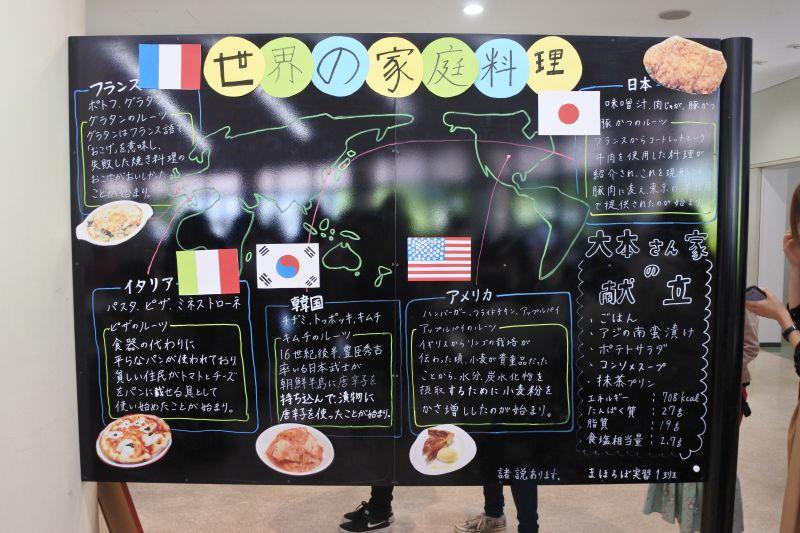 世界の家庭料理
フランス
ポトフ、グラタン
グラタンのルーツ
グラタンはフランス語で
「おこげ」を意味し、
失敗した焼き料理の
おこげがおいしかった
ことが始まり。
日本
味噌汁、肉じゃが、豚かつ
豚かつのルーツ
フランスからコートレットという
牛肉を使用した料理が
紹介され、これを現
豚肉に変え、東京の
で提供されたのが始まり
イタリア
パスタ、ピザ、ミネストローネ
ピザのルーツ
食器の代わりに
平らなパンが使われており
貧しい住民がトマトとチーズ
をパンに載せる具として
使い始めたことが始まり。
韓国
チヂミ、トッポッキ、キムチ
キムチのルーツ
16世紀後半、豊臣秀吉
率いる日本武士が
朝鮮半島に唐辛子を
持ち込んで、漬物に
唐辛子を使ったことが始まり。
アメリカ
ハンバーガー、フライドチキン、アップルパイ
アップルパイのルーツ
イギリスからリンゴの栽培が
伝わった頃、小麦が貴重品だった
ことから、水分、炭水化物を
摂取するために小麦粉を
かさ増ししたのが始まり。
大本さん家
の
献立
・ごはん
・アジの南蛮漬け
・ポテトサラダ
・コンソメスープ
・抹茶プリン
エネルギー : 708kcal
たんぱく質 : 27g
脂質 : 19g
食塩相当量 : 2.9g
諸説あります。
まほろば実習1班